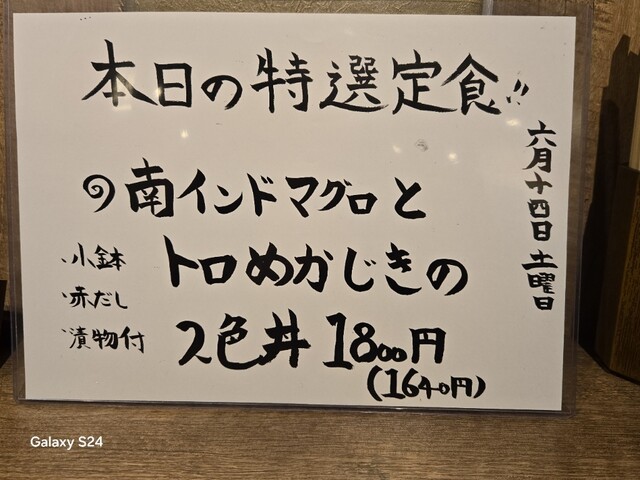 本日の特選定食!!
六月十四日 土曜日
南インドマグロと
トロめかじきの
2色丼 1800円
(1640円)
小鉢
赤だし
漬物付
Galaxy S24